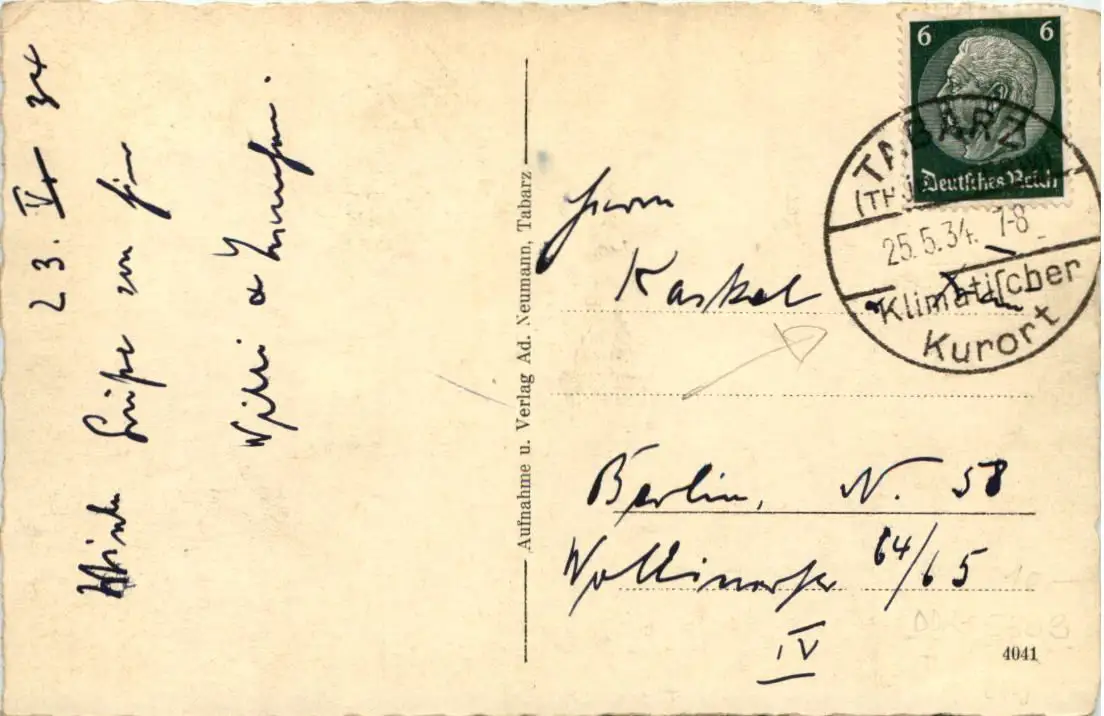 23. V 34
Grüße von hier
Willi &
Aufnahme u. Verlag Ad. Neumann, Tabarz
6 6
Deutsches Reich
TABARZ
(THÜ
25.5.34. 7-8
Klimatischer
Kurort
Herrn
Kaskel
Berlin, N. 58
64/65
IV
4041